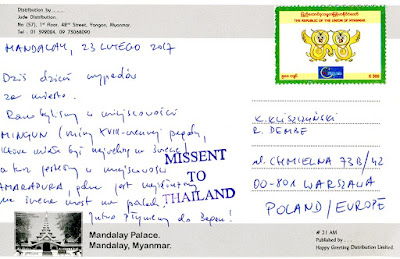 Distribution by . . . .
Jude Distribution:
No (57), 1st Floor, 48th Street, Yangon, Myanmar.
Tel : 01 399084, 09 73068090
MANDALAY, 23 LUTEGO 2017
Dziś dzień wypadów
za miasto.
Rano byliśmy w miejscowości
MINGUN (ruiny XVIII-wiecznej pagody,
która miała być największą w świecie)
a teraz jesteśmy w miejscowości
AMARAPURA, gdzie jest najdłuższy
na świecie most na palach.
Jutro płyniemy do Bagan!
THE REPUBLIC OF THE UNION OF MYANMAR
K. KLISZCZYŃSKI
R. DEMBE
ul. CHMIELNA 73B/42
00-801 WARSZAWA
POLAND/EUROPE
MISSENT
TO
THAILAND
Mandalay Palace.
Mandalay, Myanmar.
# 21 AM
Published by . . .
Happy Greeting Distribution Limited